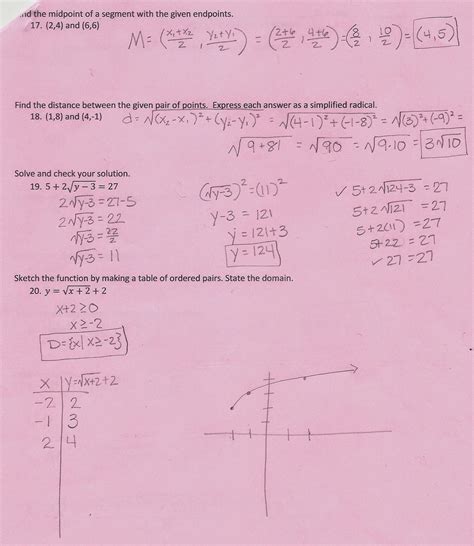 nd the midpoint of a segment with the given endpoints.
17. (2,4) and (6,6)
M = (x₁+x₂/2, y₂+y₁/2) = (2+6/2, 4+6/2) = (8/2, 10/2) = (4,5)
Find the distance between the given pair of points. Express each answer as a simplified radical.
18. (1,8) and (4,-1) d = √(x₂-x₁)²+(y₂-y₁)² = √(4-1)²+(-1-8)² = √(3)²+(-9)² =
√9+81 = √90 = √9·10 = 3√10
Solve and check your solution.
19. 5 + 2√y − 3 = 27
2√y-3 = 27-5
2√y-3 = 22
√y-3 = 22/2
√y-3 = 11
(√y-3)² = (11)²
y-3 = 121
y = 121+3
y = 124
✓ 5+2√124-3 = 27
5+2√121 = 27
5+2(11) = 27
5+22 = 27
✓ 27 = 27
Sketch the function by making a table of ordered pairs. State the domain.
20. y = √x + 2 + 2
x+2≥0
x≥-2
D={x| x≥-2}
x y=√x+2+2
-2 2
-1 3
2 4